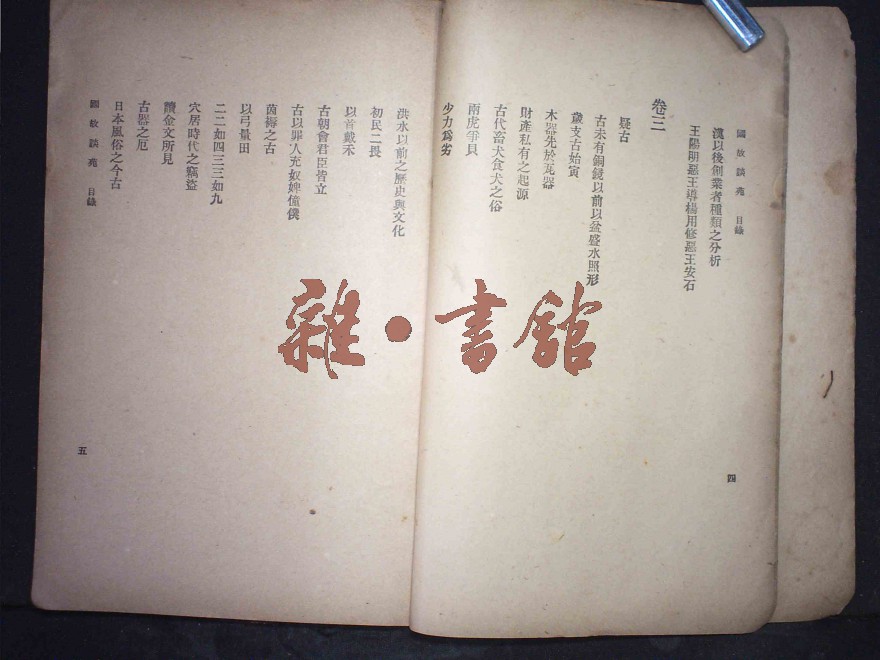 國故談苑 目錄
漢以後創業者種類之分析
王陽明惡王導楊用修惡王安石
卷三
疑古
古未有銅鏡以前以盆盛水照形
歲支古始寅
木器先於瓦器
財產私有之起源
古代畜犬食犬之俗
兩虎爭貝
少力爲劣
四
洪水以前之歷史與文化
初民二畏
以首戴禾
古朝會君臣皆立
古以罪人充奴婢僮僕
茵褥之古
以弓量田
二二如四三三如九
穴居時代之竊盜
讀金文所見
古器之厄
日本風俗之今古
國故談苑 目錄
五
雜·書館